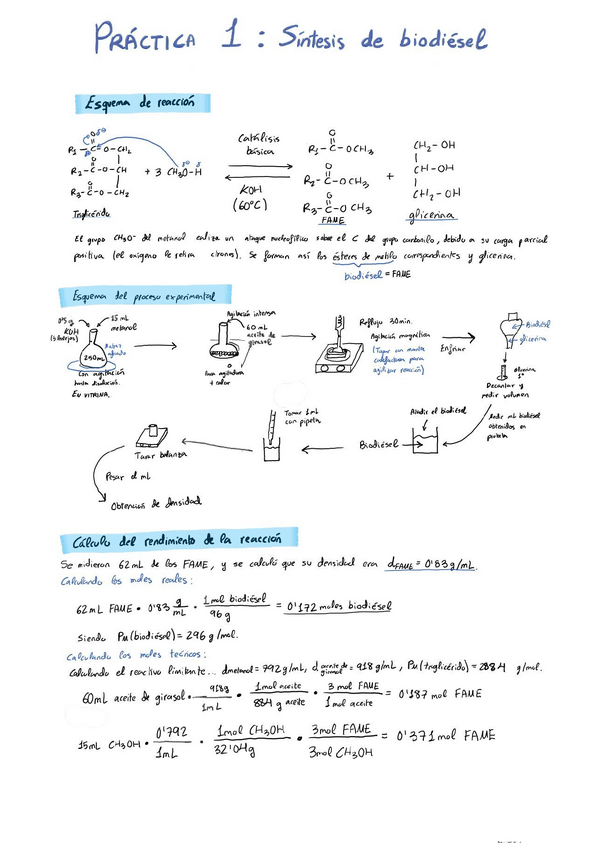 PRÁCTICA 1: Síntesis de biodiésel
Esquema de reacción
R₁ – C – O – CH₂
R₂ – C – O – CH
R₃ – C – O – CH₂
Triglicérido
+ 3 CH₃O – H
Catálisis
básica
KOH
(60ºC)
R₁ – C – OCH₃
R₂ – C – OCH₃
R₃ – C – OCH₃
FAME
+
CH₂ – OH
CH – OH
CH₂ – OH
glicerina
El grupo CH₃O⁻ del metanol realiza un ataque nucleofílico sobre el C del grupo carbonilo, debido a su carga parcial
positiva (el oxígeno le retira). Se forman así los ésteres de metilo correspondientes y glicerina.
biodiésel = FAME
Esquema del proceso experimental
KOH
15 mL
metanol
250mL
Con agitación
hasta disolución.
EN VITRINA.
Agitación intensa
60 mL
aceite de
girasol
+ calor
Reflujo 30min.
Agitación magnética
(Tapar con manta
calefactora para
agilizar reacción)
Enfriar
Biodiésel
glicerina
Decantar y
medir volumen
mL biodiésel
obtenidos en
probeta
Añadir el biodiésel
Biodiésel
Tomar 1mL
con pipeta
Tarar balanza
Pesar el mL
Obtención de densidad
Cálculo del rendimiento de la reacción
Se midieron 62mL de los FAME, y se calculó que su densidad era d_FAME = 0'83 g/mL.
Calculando los moles reales:
62 mL FAME · 0'83 g/mL · 1mol biodiésel / 96g = 0'172 moles biodiésel
Siendo Pm (biodiésel) = 296 g/mol.
Calculando los moles teóricos:
Calculando el reactivo limitante... dmetanol = 792 g/mL, d aceite de girasol = 918 g/mL, Pm (triglicérido) = 884 g/mol.
60mL aceite de girasol · 918g / 1mL · 1mol aceite / 884 g aceite · 3 mol FAME / 1 mol aceite = 0'187 mol FAME
15mL CH₃OH · 0'792 / 1mL · 1mol CH₃OH / 32'04g · 3mol FAME / 3mol CH₃OH = 0'371 mol FAME